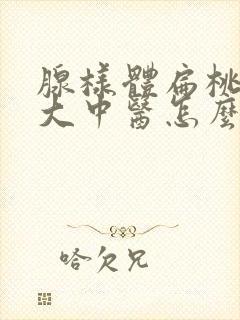 腺樣體扁桃
大中醫怎麼
哈欠兄